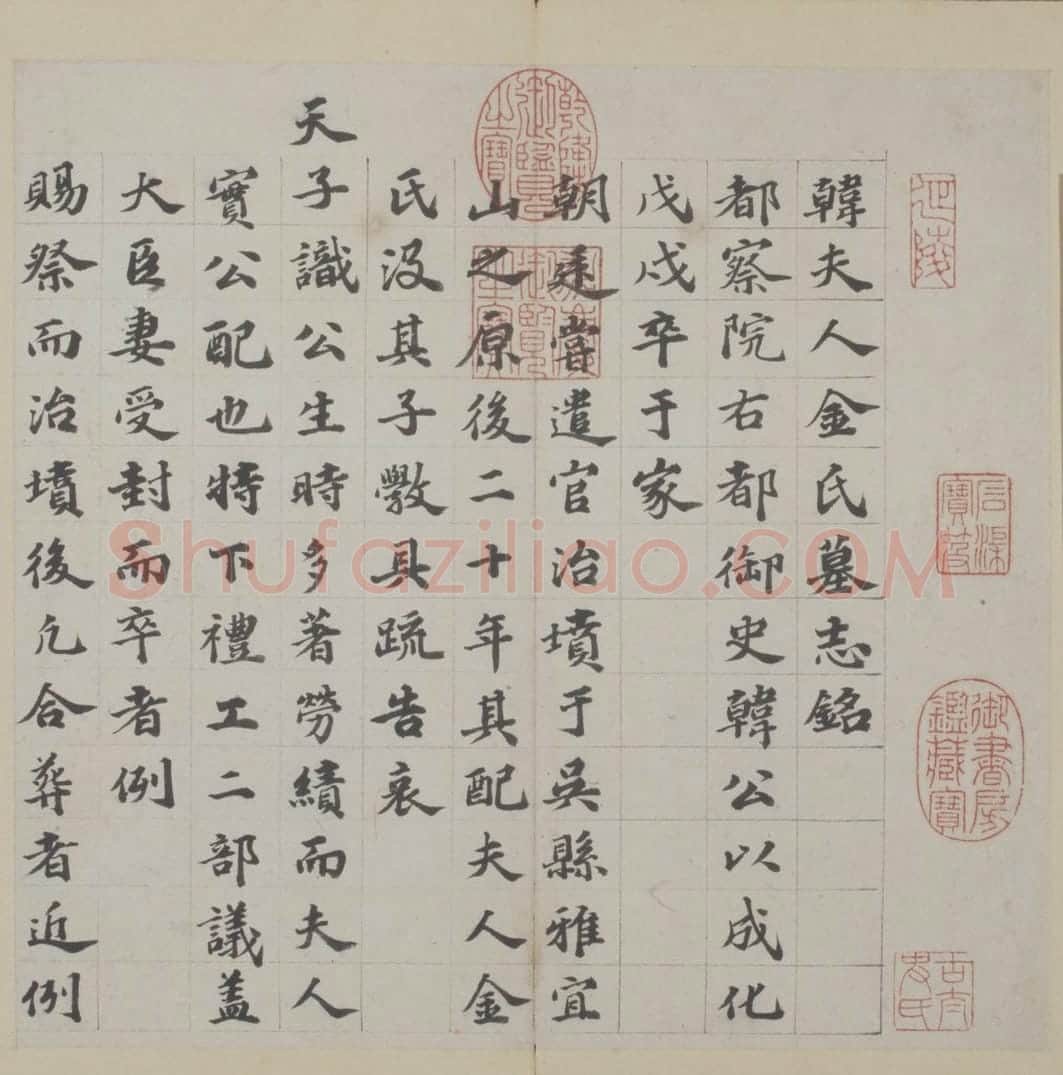 韓夫人金氏墓志銘
都察院右都御史韓公以成化
戊戌卒于家
朝廷嘗遣官治墳于吳縣雅宜
山之原後二十年其配夫人金
氏沒其子斆具疏告哀
天子識公生時多著勞績而夫人
實公配也特下禮工二部議蓋
大臣妻受封而卒者例
賜祭而治墳後凢合葬者近例
乾隆御覽之寶
御書房鑑藏寶
Shufaziliao.com